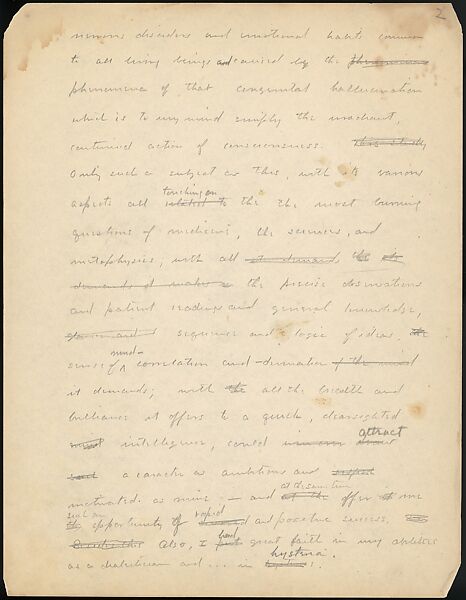 2
nervous disorders and emotional habits common
to all living beings and caused by the
phenomena of that congenital hallucination
which is to my mind simply the
continued action of consciousness. This study
Only such a subject as this, with its various
touching on
aspects all related to the the most burning
questions of medicine, the sciences, and
metaphysics; with all it demands the
demands it makes the precise observations
and patient readings and general knowledge,
sequence and logic of ideas, the
mind-
sense of correlation and domination of the mind
it demands; with the all the breadth and
brilliance it offers to a quick, clearsighted
intelligence, could attract
a caracter as ambitious and
at the same time
motivated as mine — and at the offer it me
such an rapid
the opportunity of and positive success.
had
Also, I put great faith in my abilities
hysteria.
as a dialectician and ... in